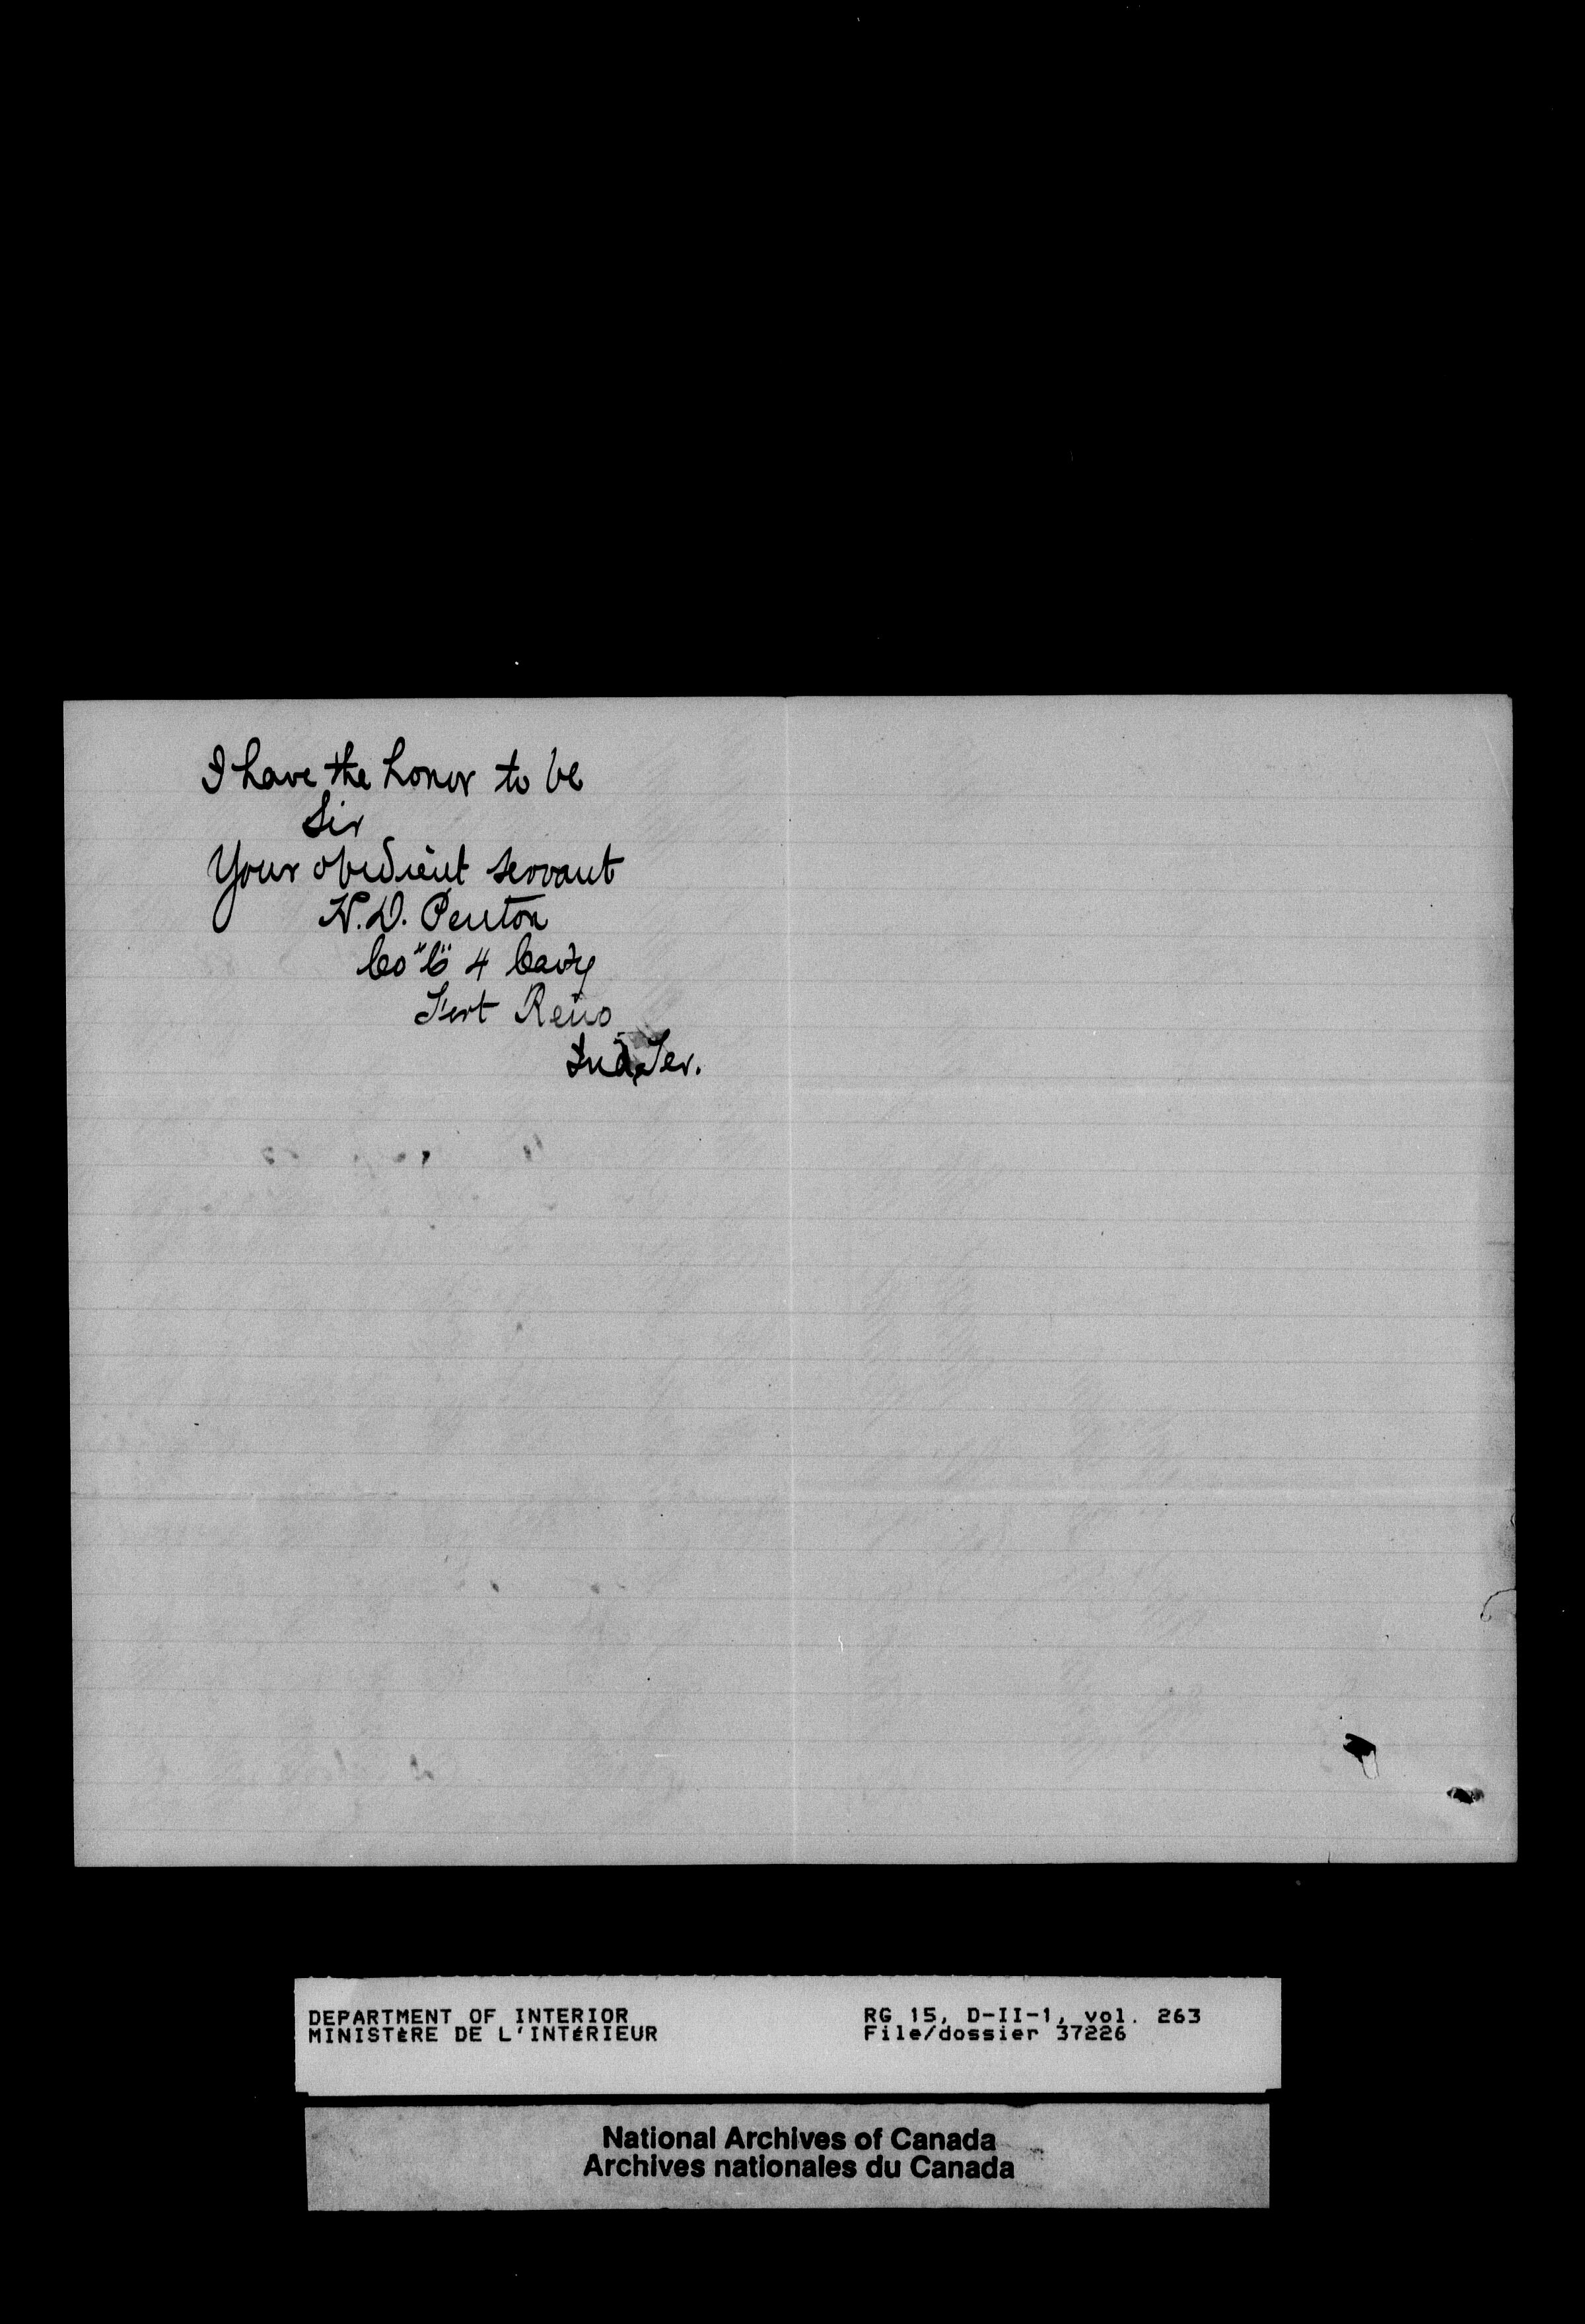 I have the honor to be
Sir
Your obedient servant
H.D. Penton
Co "C" 4 Cavy
Fort Reno
Ind. Ter.
DEPARTMENT OF INTERIOR
MINISTÈRE DE L'INTÉRIEUR
RG 15, D-II-1, vol. 263
File/dossier 37226
National Archives of Canada
Archives nationales du Canada